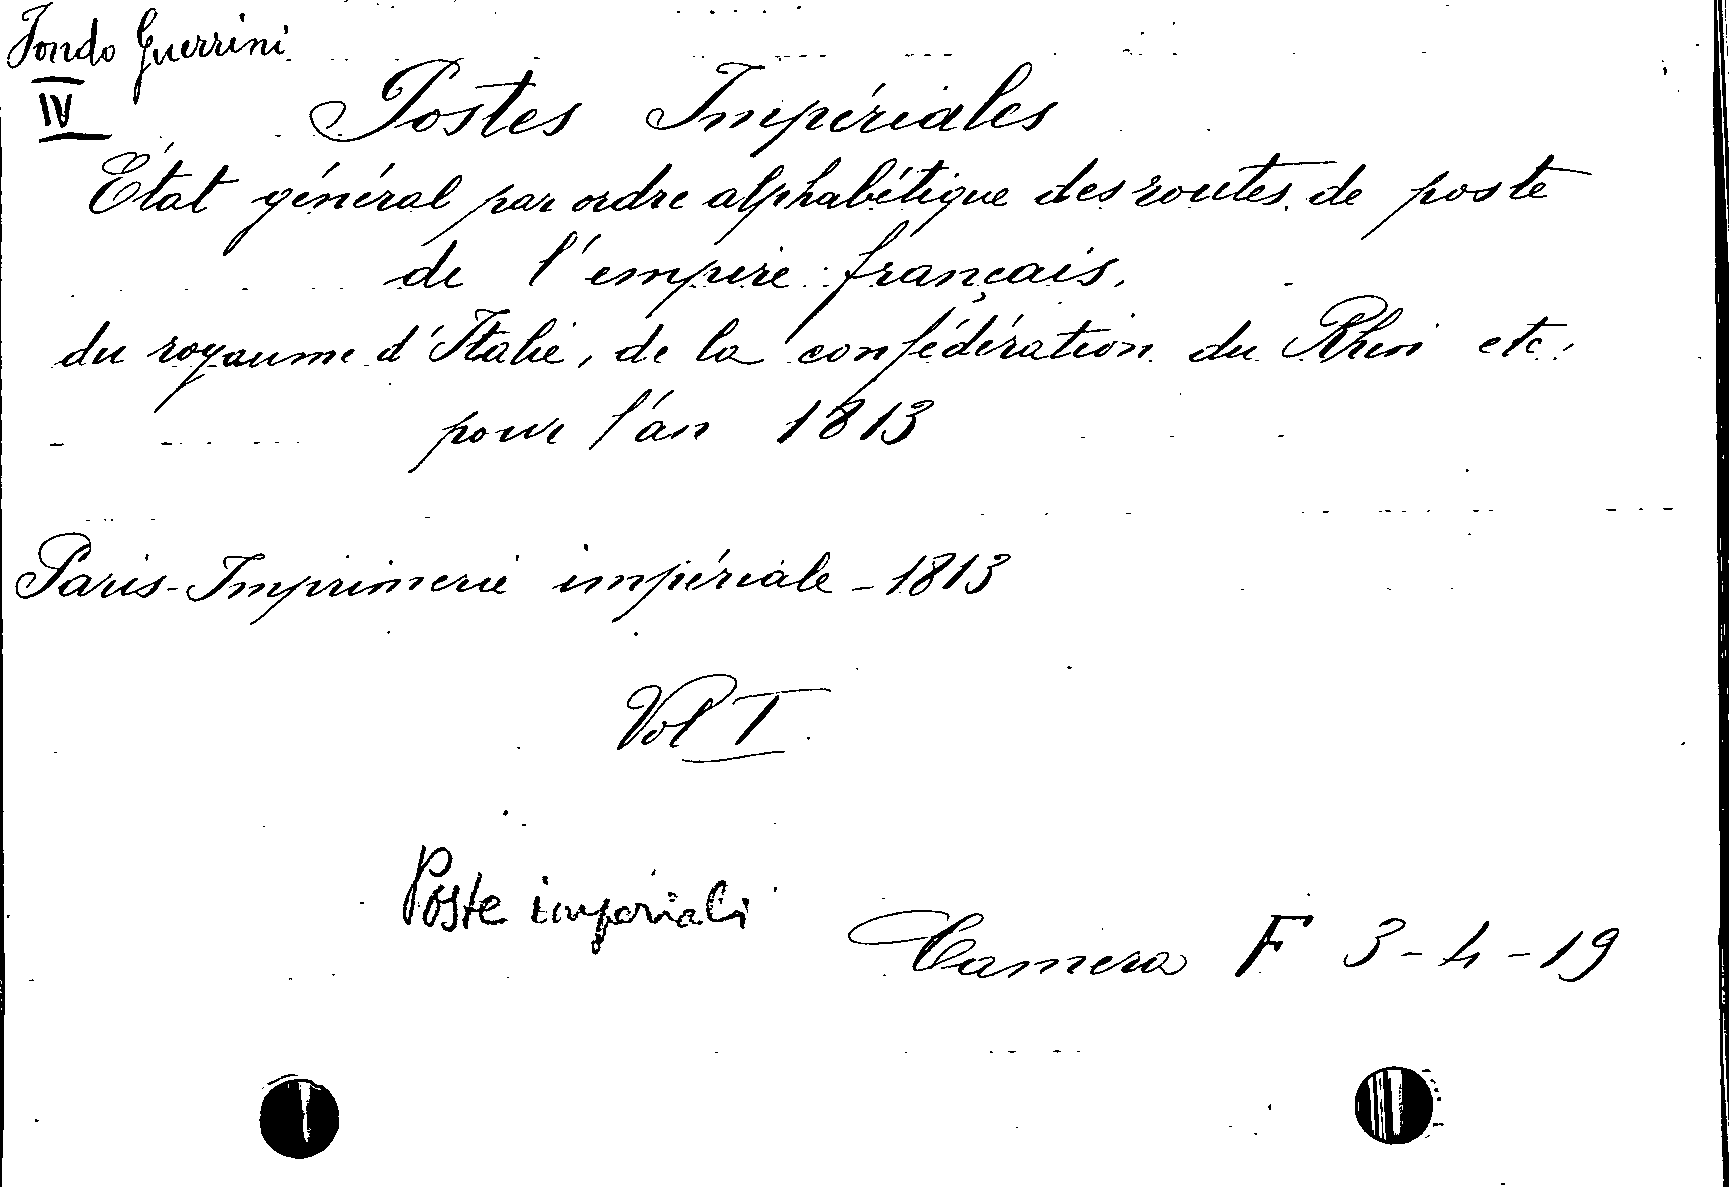 Fondo Guerrini
IV
Postes Impériales
État général par ordre alphabétique des routes de poste
de l'empire français,
du royaume d'Italie, de la confédération du Rhin etc.
pour l'an 1813
Paris - Imprimerie impériale - 1813
Vol I
Poste imperiali
Camera F 3-4-19